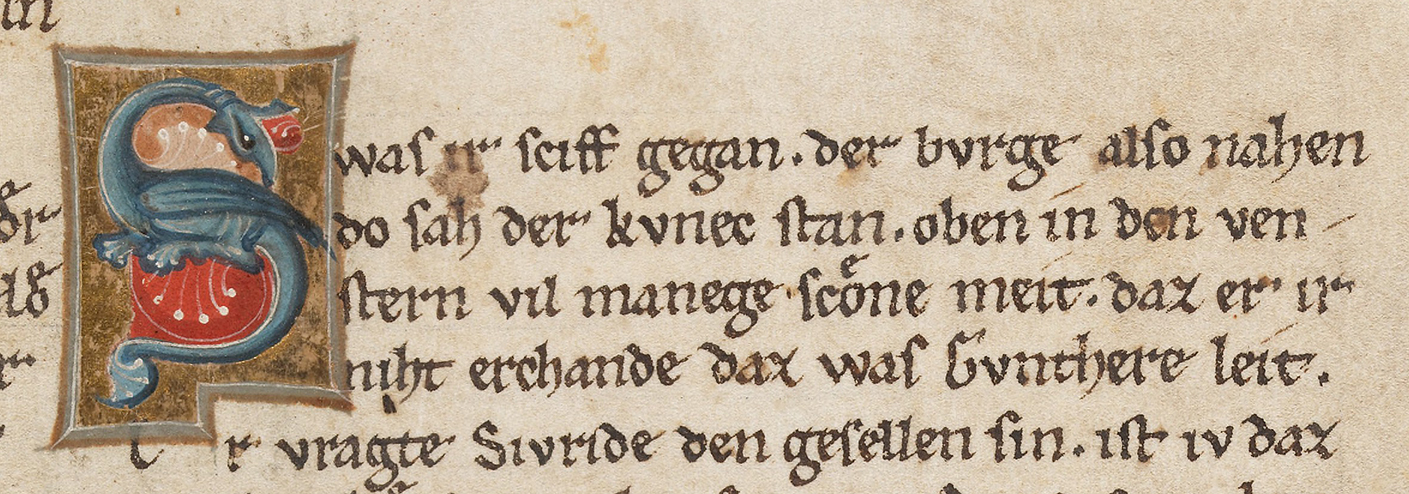 was ir sciff gegan. der bvrge also nahen
do sah der kvnec stan. oben in den ven
stern vil manege scoͤne meit. daz er ir
niht erchande daz was Gvnthere leit.
r vragte Sivride den gesellen sin. ist iv daz